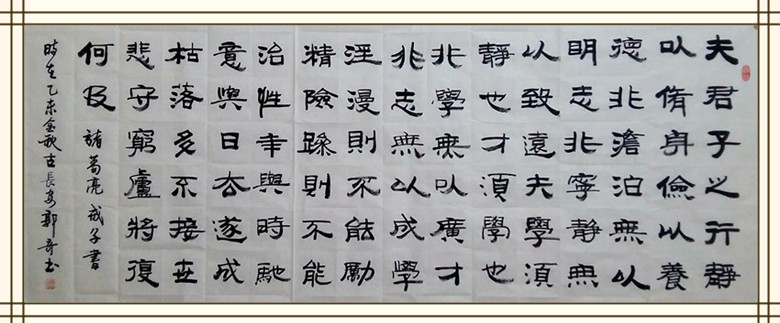 夫君子之行靜
以脩身儉以養
德非澹泊無以
明志非寧靜無
以致遠夫學須
靜也才須學也
非學無以廣才
非志無以成學
淫漫則不能勵
精險躁則不能
治性年與時馳
意與日去遂成
枯落多不接世
悲守窮廬將復
何及 諸葛亮 戒子書
時在乙未金秋古長安郭奇书